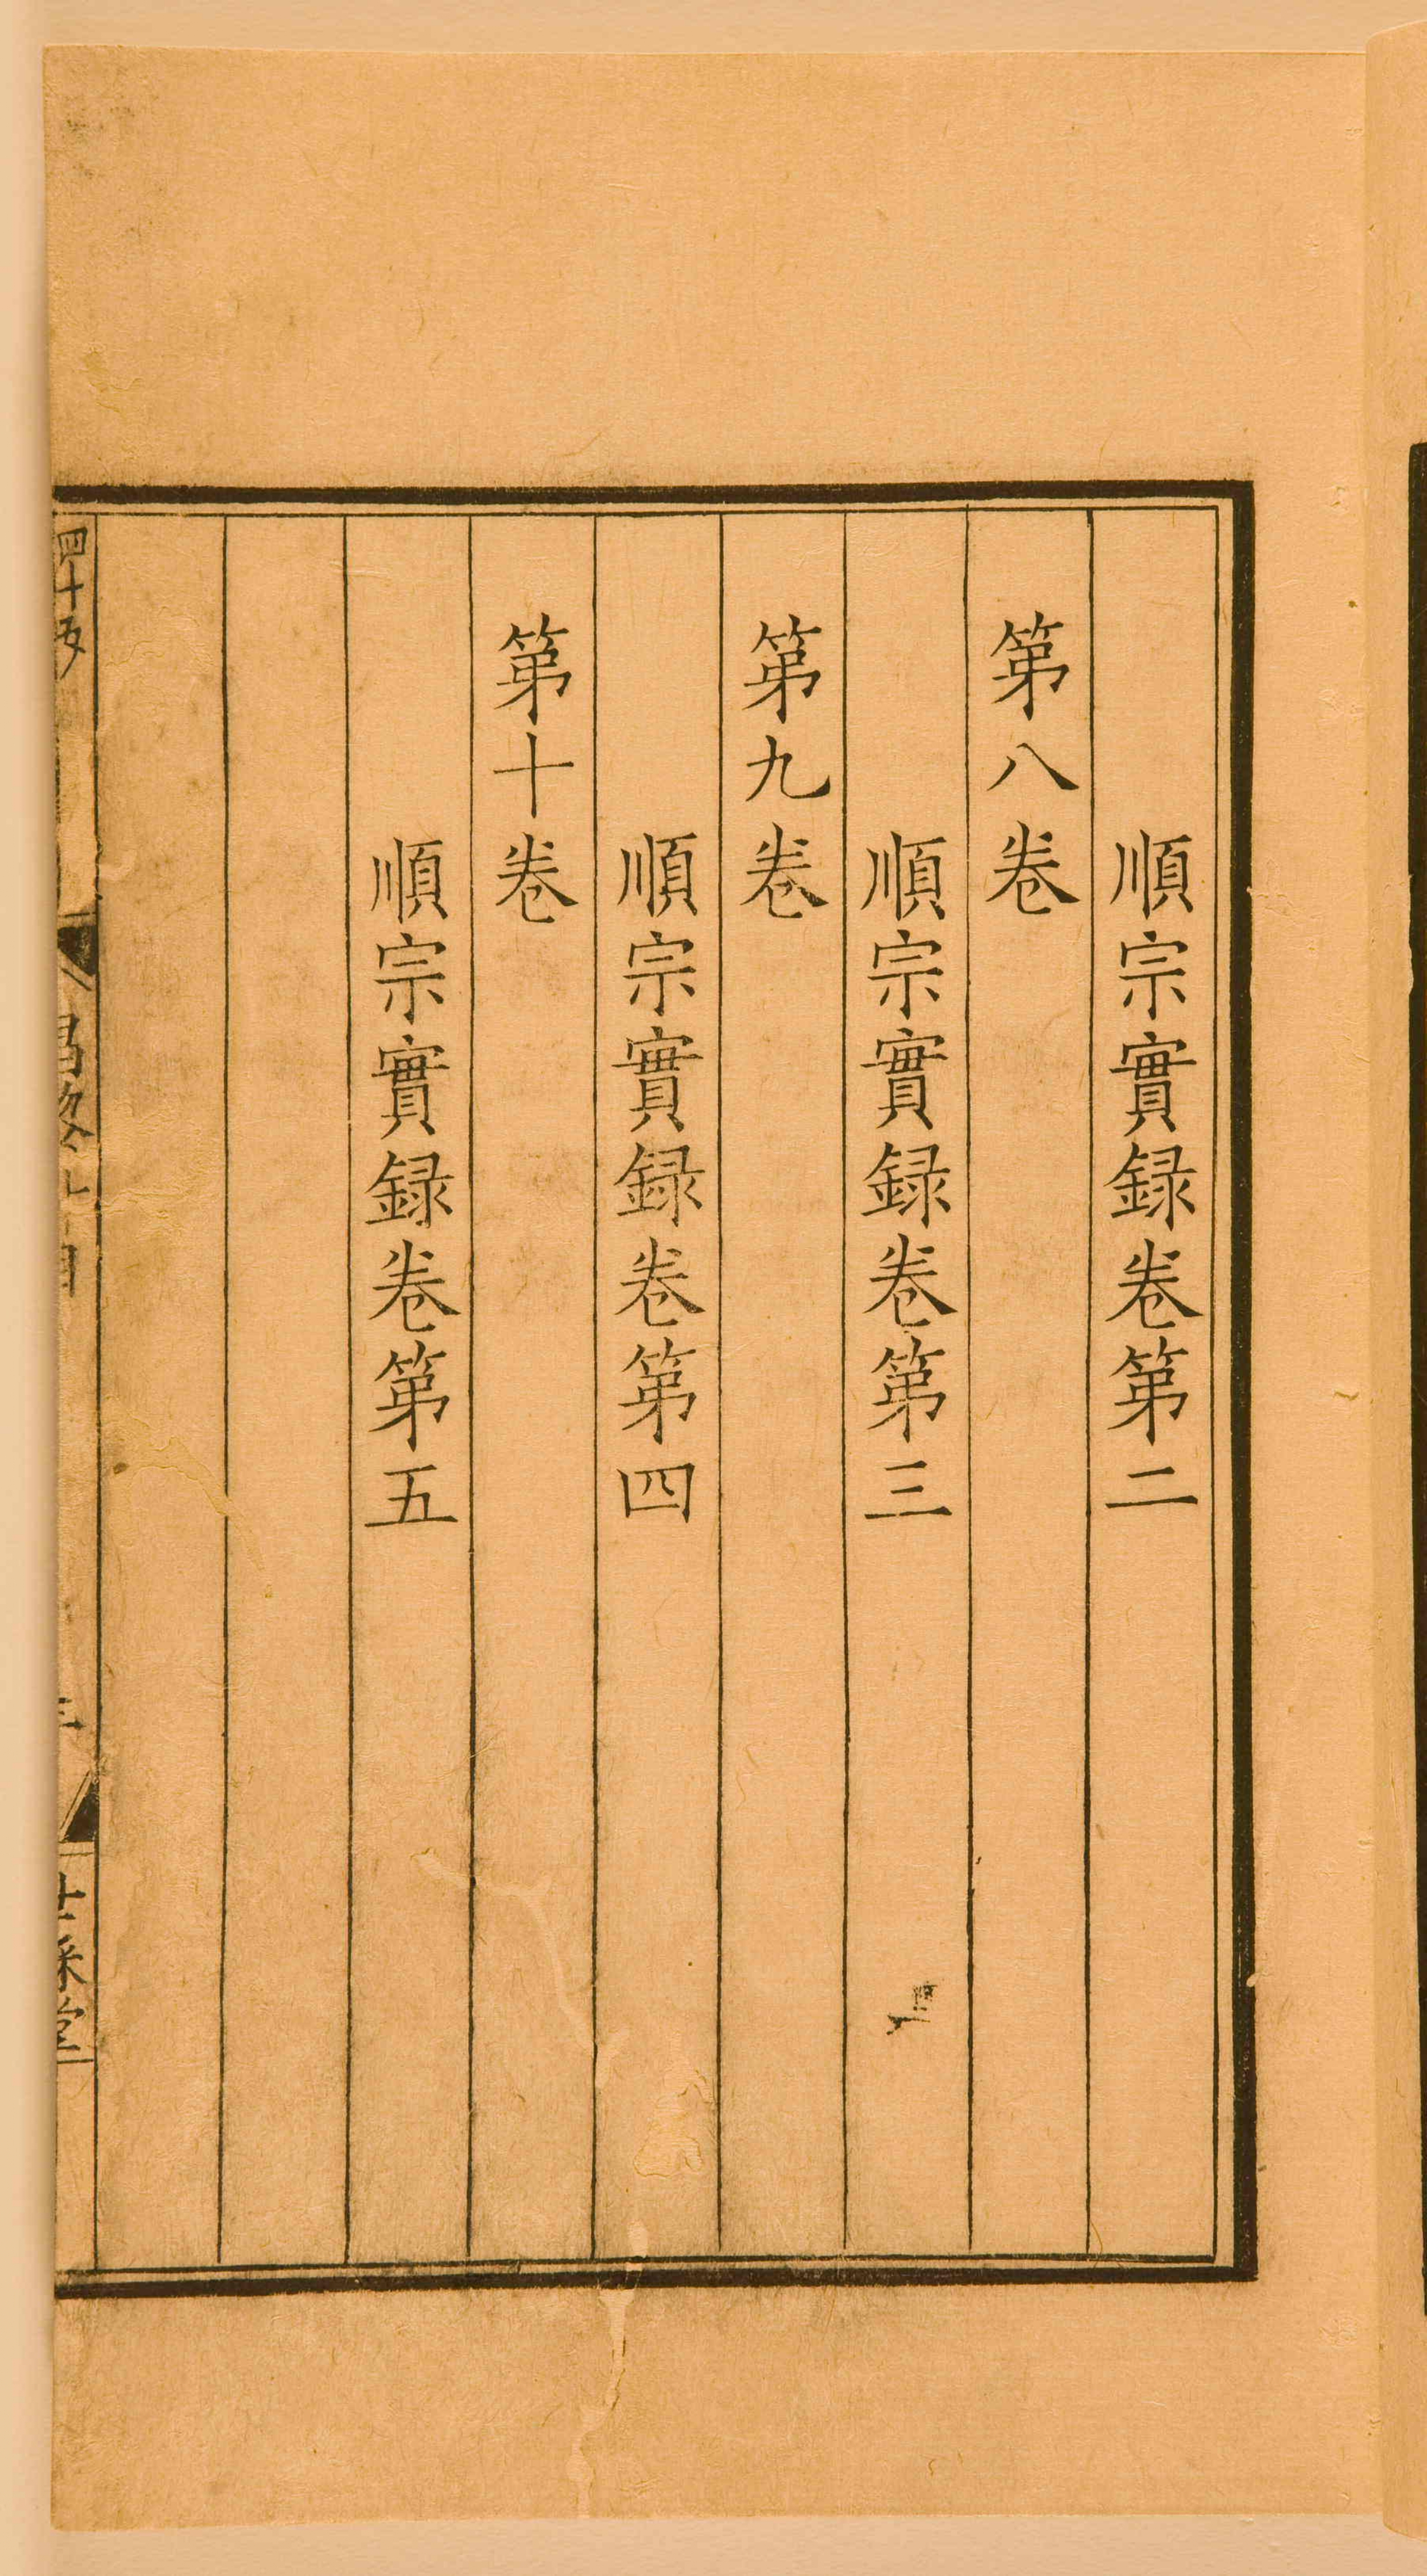 順宗實録卷第二
第八卷
順宗實録卷第三
第九卷
順宗實録卷第四
第十卷
順宗實録卷第五
四十五